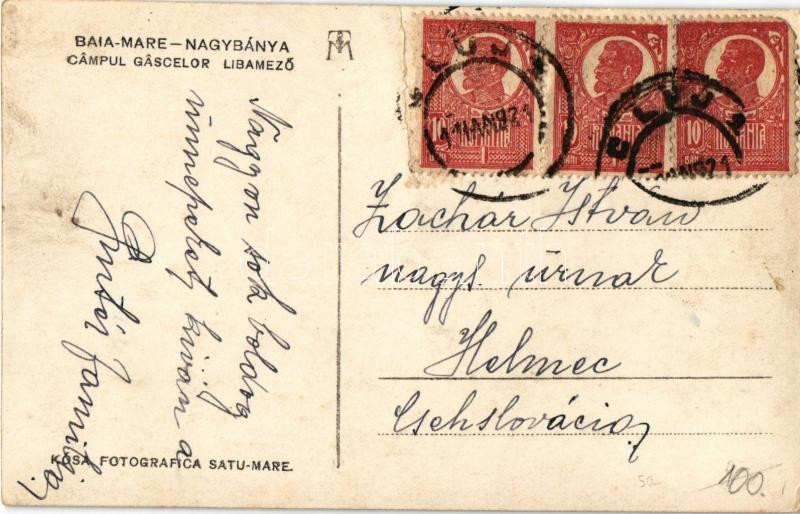 BAIA-MARE—NAGYBÁNYA
CÂMPUL GÂSCELOR LIBAMEZŐ
Nagyon sok boldog
ünnepeket kíván a
Pintér
KÓSA FOTOGRAFICA SATU-MARE.
CLUJ
CLUJ
10 ROMANIA
ROMANIA
10 ROMANIA
Zachar István
nagys. úrnak
Helmec
Csehslovácia
50
100.